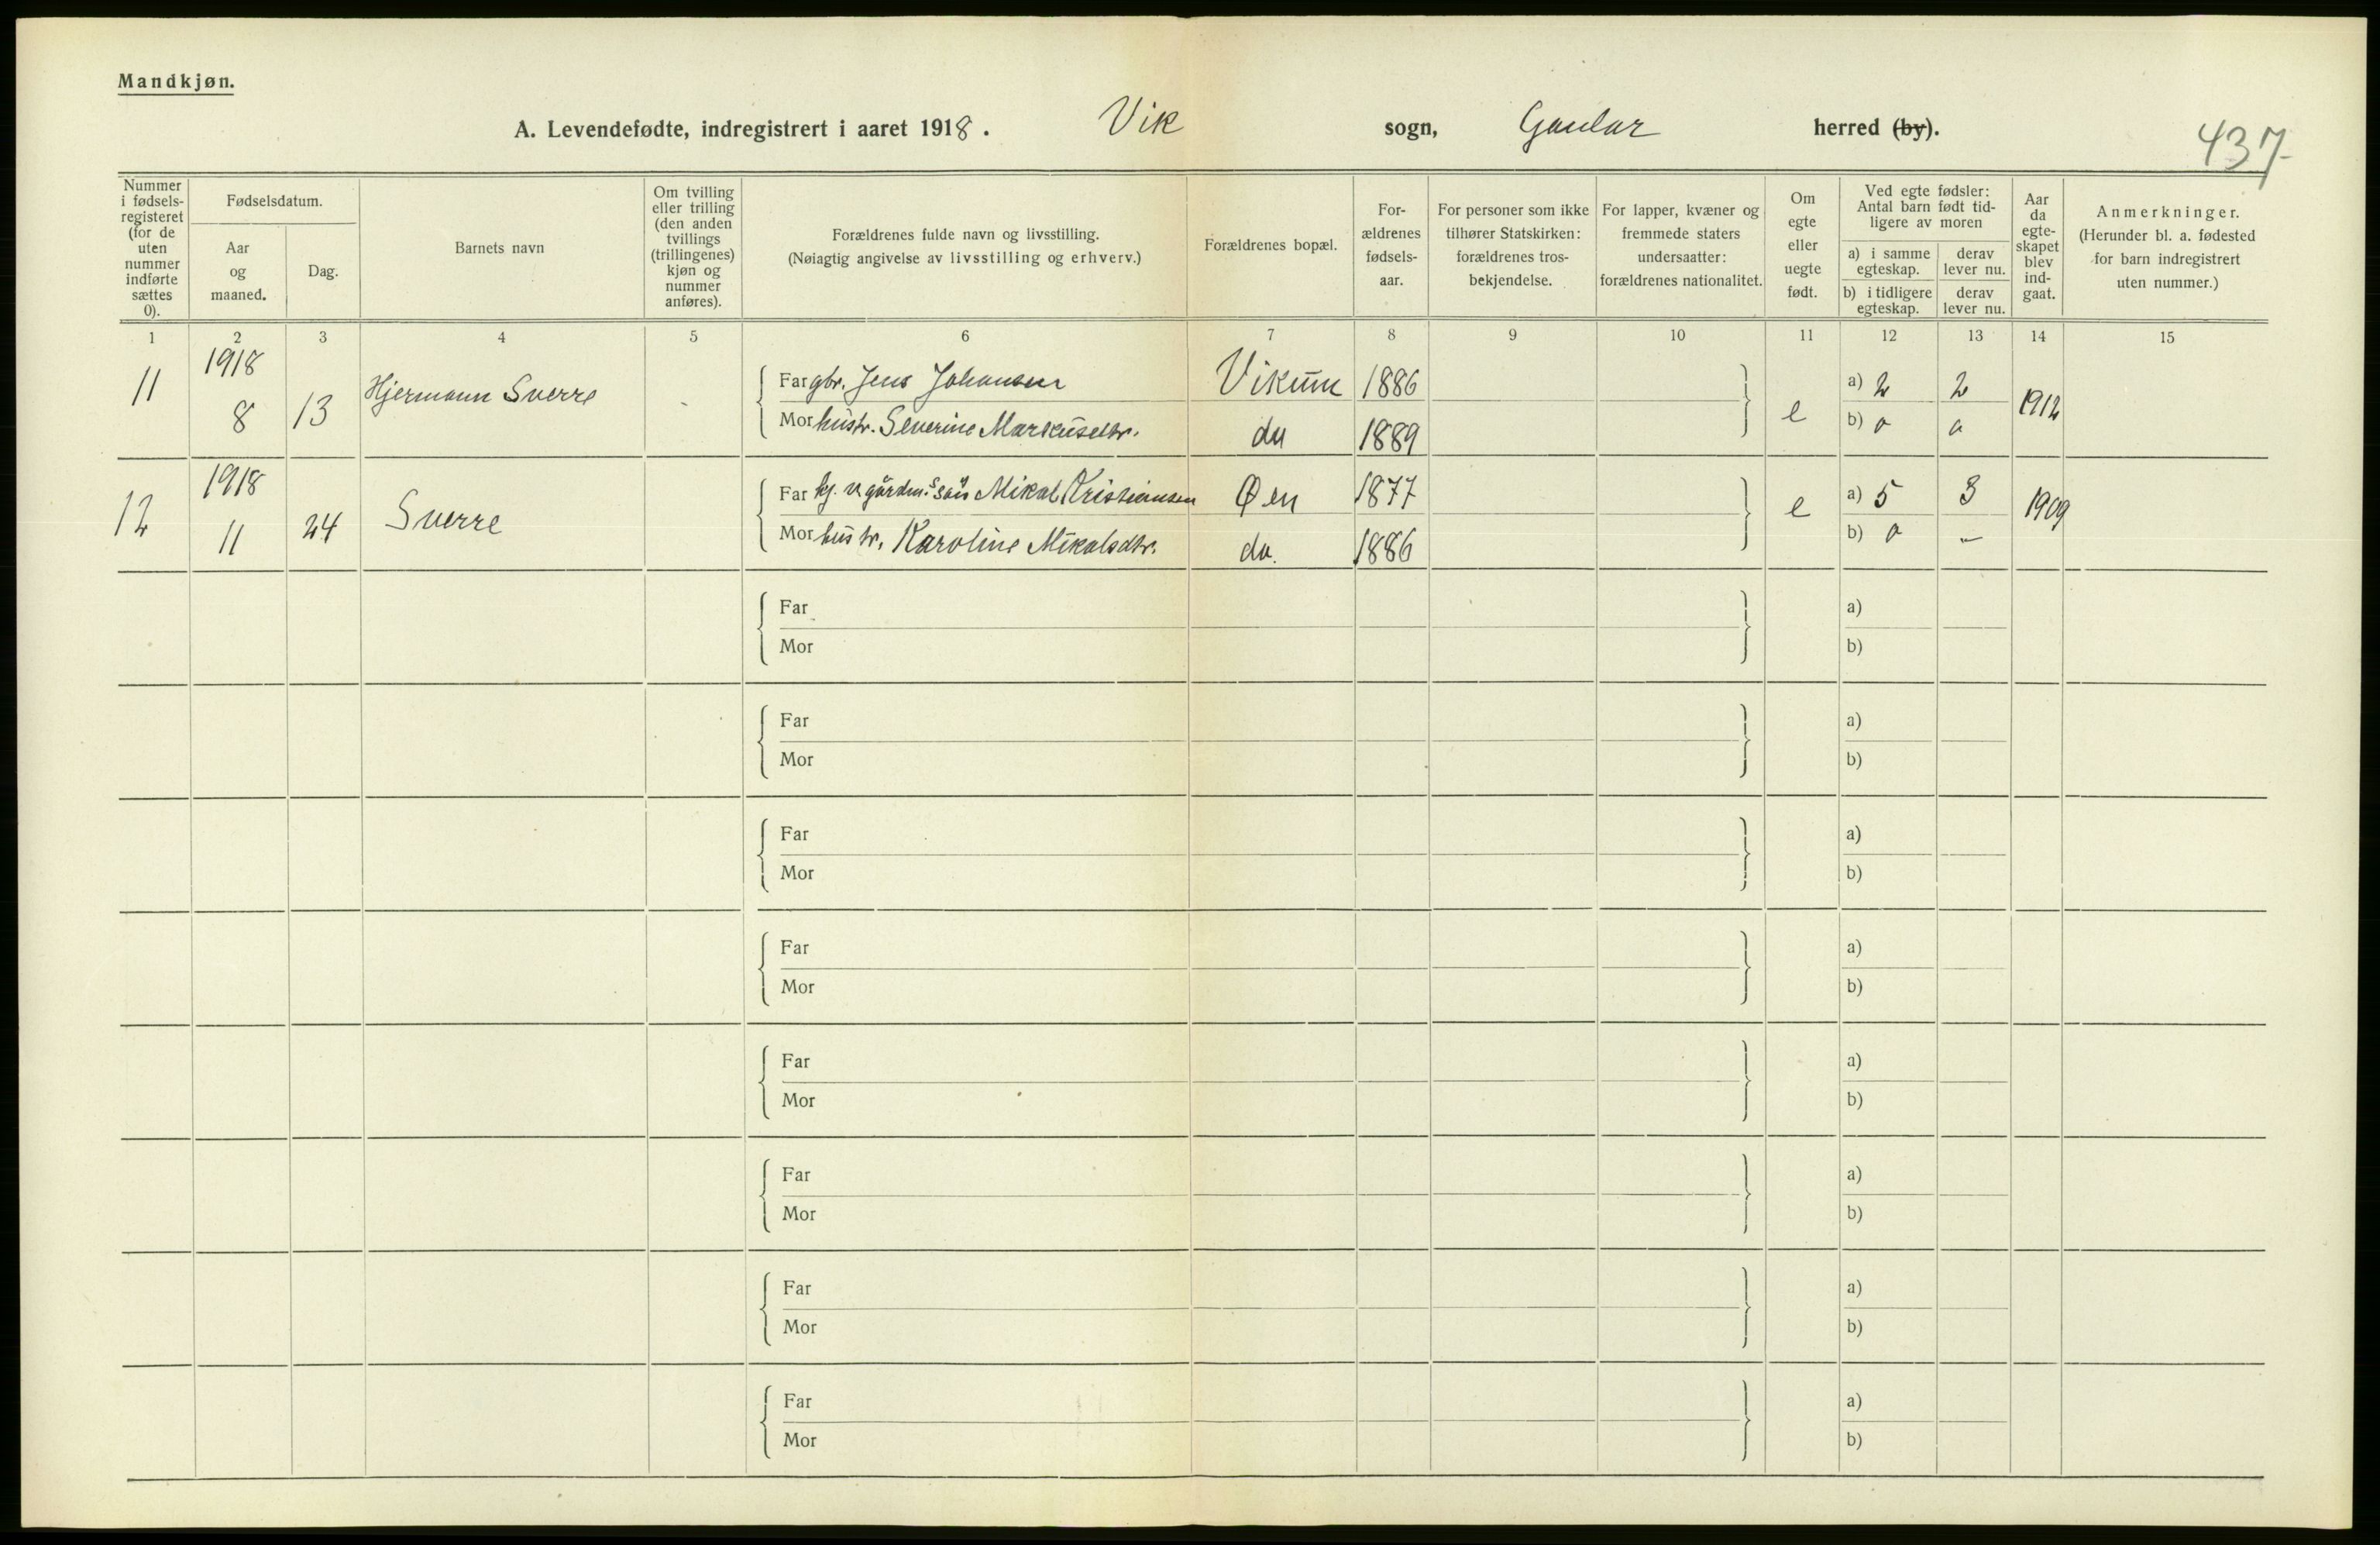 Mandkjøn.
A. Levendefødte, indregistrert i aaret 1918. Vik sogn, Gaular herred (by).
437
Nummer i fødsels-registeret (for de uten nummer indførte sættes 0).
Fødselsdatum.
Aar og maaned.
Dag.
Barnets navn
Om tvilling eller trilling (den anden tvillings (trillingenes) kjøn og nummer anføres).
Forældrenes fulde navn og livsstilling.
(Nøiagtig angivelse av livsstilling og erhverv.)
Forældrenes bopæl.
For-ældrenes fødsels-aar.
For personer som ikke tilhører Statskirken: forældrenes tros-bekjendelse.
For lapper, kvæner og fremmede staters undersaatter: forældrenes nationalitet.
Om egte eller uegte født.
Ved egte fødsler: Antal barn født tid-ligere av moren
a) i samme egteskap.
derav lever nu.
b) i tidligere egteskap.
derav lever nu.
Aar da egte-skapet blev ind-gaat.
Anmerkninger.
(Herunder bl. a. fødested for barn indregistrert uten nummer.)
1 2 3 4 5 6 7 8 9 10 11 12 13 14 15
11 1918 8 13 Hjermann Sverre - Far gbr. Jens Johansen Vikum 1886 e a) 2 2 1912
Mor hustr. Severine Markusdtr. do 1889 b) o o
12 1918 11 24 Sverre Far kj. v gårdm.s søn Mikal Kristiansen Øen 1877 e a) 5 3 1909
Mor hustr. Karoline Mikalsdtr. do. 1886 b) o -
Far a)
Mor b)
Far a)
Mor b)
Far a)
Mor b)
Far a)
Mor b)
Far a)
Mor b)
Far a)
Mor b)
Far a)
Mor b)
Far a)
Mor b)